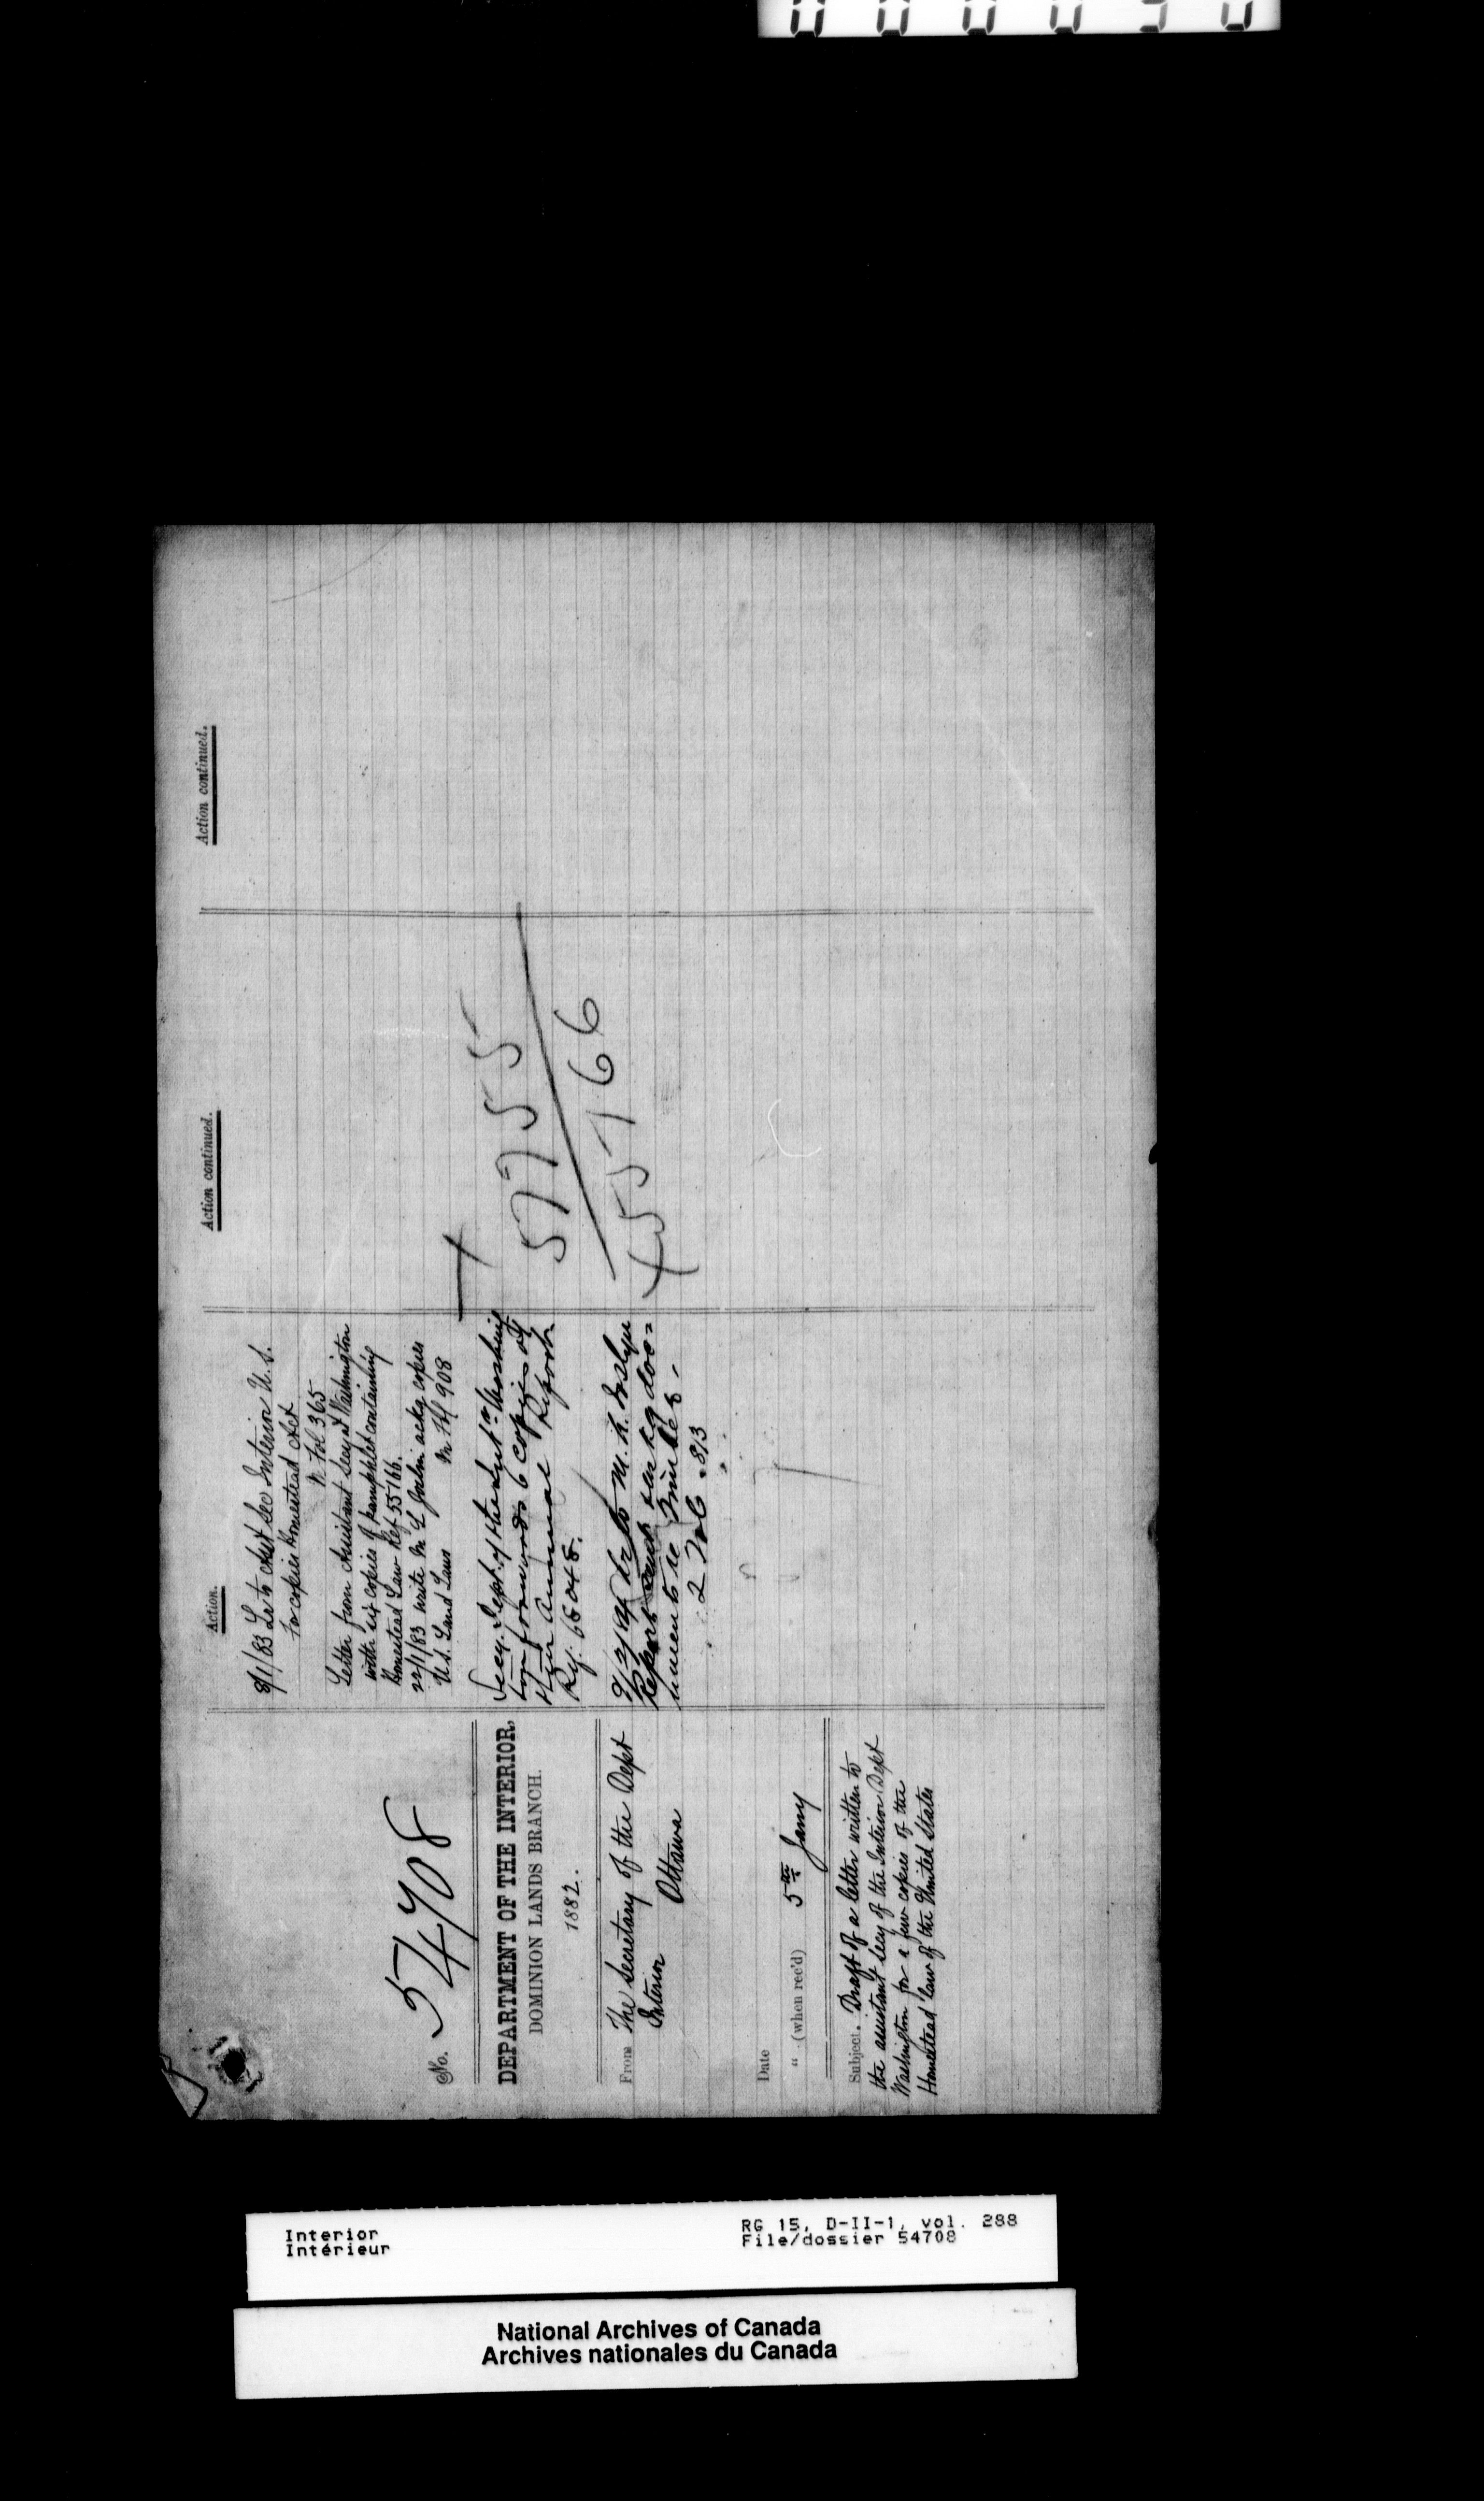 No. 54708
DEPARTMENT OF THE INTERIOR,
DOMINION LANDS BRANCH.
1882.
From The Secretary of the Dept
Interior
Ottawa
Date
" (when rec'd) 5th Jany
Subject. Draft of a letter written to
the assistant Secy of the Interior Dept
Washington for a few copies of the
Homestead law of the United States
Action.
8/1/83 Le to Asst Sec Interior U.S.
for copies Homestead Act
N. Fol 365
Letter from Assistant Secy at Washington
with six copies of pamphlet containing
Homestead Law Ref 55166.
22/1/83 write M L ackg copies
U.S. Land Laws M Fol 908
Secy. Dept. of the Int'r Washing
ton forwards 6 copies of
their Annual Report
Ref. 68048.
9/2/84 Lr to M. K. Joslyn
Report
uments to
2 Tol 6. 813
Action continued.
57755
55166
Action continued.
Interior
Intérieur
RG 15, D-II-1, vol. 288
File/dossier 54708
National Archives of Canada
Archives nationales du Canada